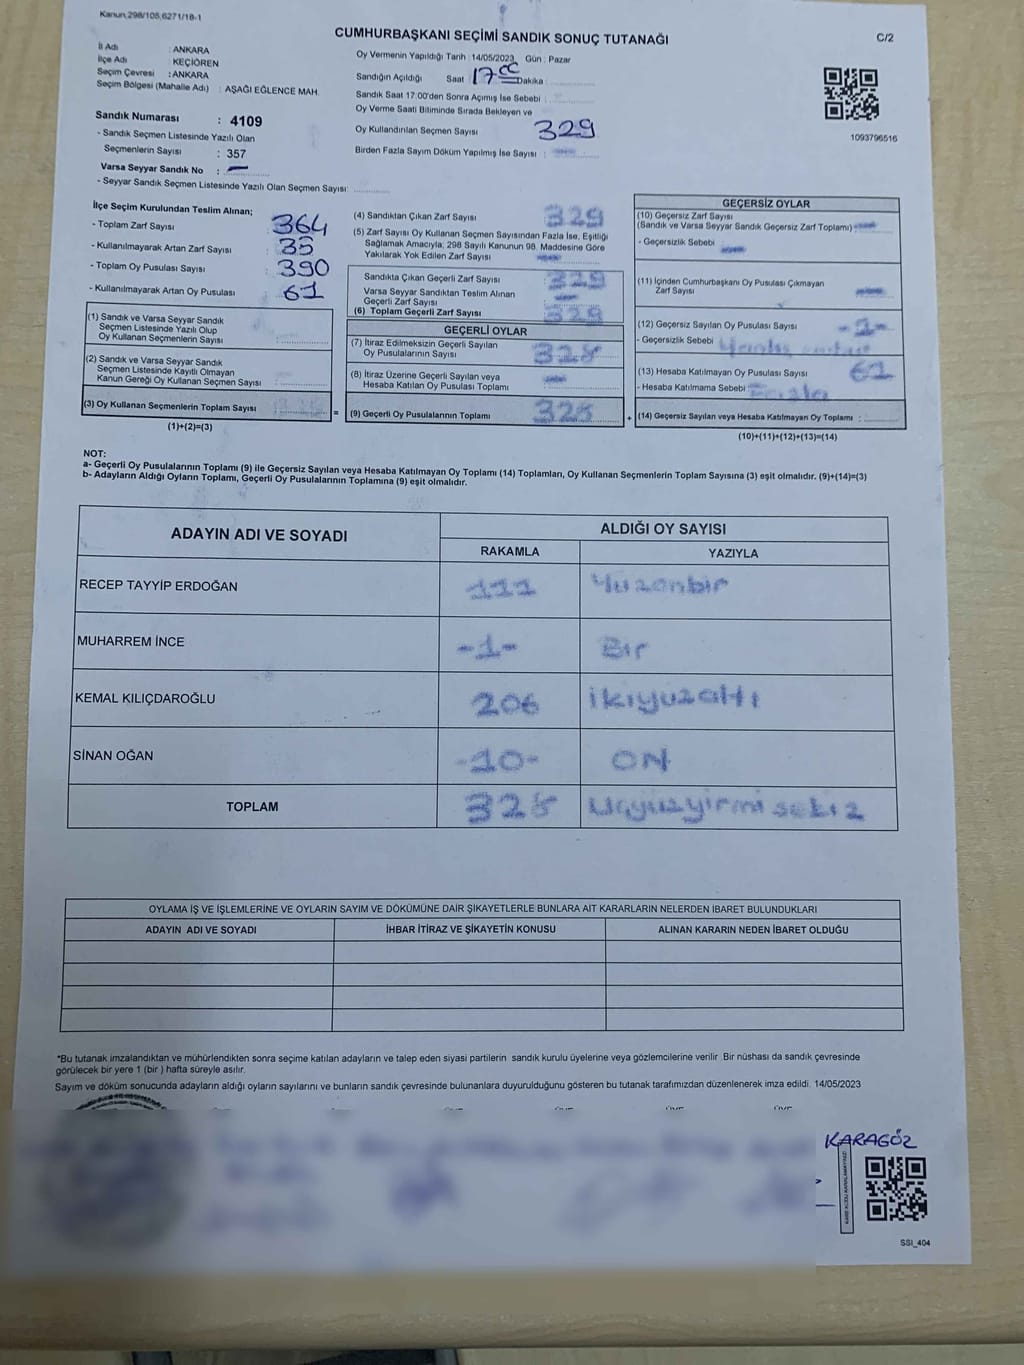 Kanun,298/105,6271/18-1
CUMHURBAŞKANI SEÇİMİ SANDIK SONUÇ TUTANAĞI
C/2
İl Adı : ANKARA
İlçe Adı : KEÇİÖREN
Seçim Çevresi : ANKARA
Seçim Bölgesi (Mahalle Adı) : AŞAĞI EĞLENCE MAH.
Sandık Numarası : 4109
- Sandık Seçmen Listesinde Yazılı Olan
Seçmenlerin Sayısı : 357
Varsa Seyyar Sandık No :
- Seyyar Sandık Seçmen Listesinde Yazılı Olan Seçmen Sayısı:
Oy Vermenin Yapıldığı Tarih : 14/05/2023 Gün : Pazar
Sandığın Açıldığı Saat 17 Dakika :
Sandık Saat 17:00'den Sonra Açımış İse Sebebi :
Oy Verme Saati Bitiminde Sırada Bekleyen ve
Oy Kullandırılan Seçmen Sayısı 329
Birden Fazla Sayım Döküm Yapılmış İse Sayısı :
1093796516
İlçe Seçim Kurulundan Teslim Alınan;
- Toplam Zarf Sayısı 364
- Kullanılmayarak Artan Zarf Sayısı 35
- Toplam Oy Pusulası Sayısı : 390
- Kullanılmayarak Artan Oy Pusulası : 61
(1) Sandık ve Varsa Seyyar Sandık
Seçmen Listesinde Yazılı Olup
Oy Kullanan Seçmenlerin Sayısı :
(2) Sandık ve Varsa Seyyar Sandık
Seçmen Listesinde Kayıtlı Olmayan
Kanun Gereği Oy Kullanan Seçmen Sayısı :
(3) Oy Kullanan Seçmenlerin Toplam Sayısı :
(1)+(2)=(3)
(4) Sandıktan Çıkan Zarf Sayısı 329
(5) Zarf Sayısı Oy Kullanan Seçmen Sayısından Fazla İse, Eşitliği
Sağlamak Amacıyla, 298 Sayılı Kanunun 98. Maddesine Göre
Yakılarak Yok Edilen Zarf Sayısı
Sandıkta Çıkan Geçerli Zarf Sayısı 329
Varsa Seyyar Sandıktan Teslim Alınan
Geçerli Zarf Sayısı
(6) Toplam Geçerli Zarf Sayısı 329
GEÇERLİ OYLAR
(7) İtiraz Edilmeksizin Geçerli Sayılan
Oy Pusulalarının Sayısı 328
(8) İtiraz Üzerine Geçerli Sayılan veya
Hesaba Katılan Oy Pusulası Toplamı
= (9) Geçerli Oy Pusulalarının Toplamı 328
GEÇERSİZ OYLAR
(10) Geçersiz Zarf Sayısı
(Sandık ve Varsa Seyyar Sandık Geçersiz Zarf Toplamı)
- Geçersizlik Sebebi
(11) İçinden Cumhurbaşkanı Oy Pusulası Çıkmayan
Zarf Sayısı
(12) Geçersiz Sayılan Oy Pusulası Sayısı -1-
- Geçersizlik Sebebi
(13) Hesaba Katılmayan Oy Pusulası Sayısı 61
- Hesaba Katılmama Sebebi
+ (14) Geçersiz Sayılan veya Hesaba Katılmayan Oy Toplamı :
(10)+(11)+(12)+(13)=(14)
NOT:
a- Geçerli Oy Pusulalarının Toplamı (9) ile Geçersiz Sayılan veya Hesaba Katılmayan Oy Toplamı (14) Toplamları, Oy Kullanan Seçmenlerin Toplam Sayısına (3) eşit olmalıdır. (9)+(14)=(3)
b- Adayların Aldığı Oyların Toplamı, Geçerli Oy Pusulalarının Toplamına (9) eşit olmalıdır.
ADAYIN ADI VE SOYADI
ALDIĞI OY SAYISI
RAKAMLA YAZIYLA
RECEP TAYYİP ERDOĞAN 111 Yüzonbir
MUHARREM İNCE -1- Bir
KEMAL KILIÇDAROĞLU 206 ikiyüzaltı
SİNAN OĞAN -10- ON
TOPLAM 328 Üçyüzyirmi sekiz
OYLAMA İŞ VE İŞLEMLERİNE VE OYLARIN SAYIM VE DÖKÜMÜNE DAİR ŞİKAYETLERLE BUNLARA AİT KARARLARIN NELERDEN İBARET BULUNDUKLARI
ADAYIN ADI VE SOYADI İHBAR İTİRAZ VE ŞİKAYETİN KONUSU ALINAN KARARIN NEDEN İBARET OLDUĞU
*Bu tutanak imzalandıktan ve mühürlendikten sonra seçime katılan adayların ve talep eden siyasi partilerin sandık kurulu üyelerine veya gözlemcilerine verilir .Bir nüshası da sandık çevresinde
görülecek bir yere 1 (bir ) hafta süreyle asılır.
Sayım ve döküm sonucunda adayların aldığı oyların sayılarını ve bunların sandık çevresinde bulunanlara duyurulduğunu gösteren bu tutanak tarafımızdan düzenlenerek imza edildi. 14/05/2023
KARAGÖZ
SSI_404